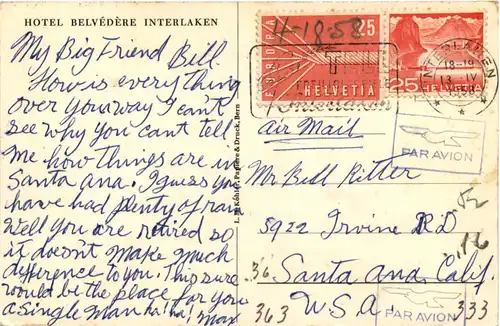 HOTEL BELVÉDÈRE INTERLAKEN
My Big Friend Bill.
How is every thing
over you way I can't
see why you cant tell
me how things are in
Santa Ana. I guess you
have had plenty of rain
Well you are retired so
it doesn't make much
difference to you. This sure
would be the place for you
a single man ha! ha! Max
Bern
4-18-58
EUROPA
25
HELVETIA
25
HELVETIA
INTERLAKEN
18-19
Interlaken
Air Mail
PAR AVION
Mr Bill Ritter
5922 Irvine RD
Santa Ana Calif.
U.S.A.
36
363
333
PAR AVION